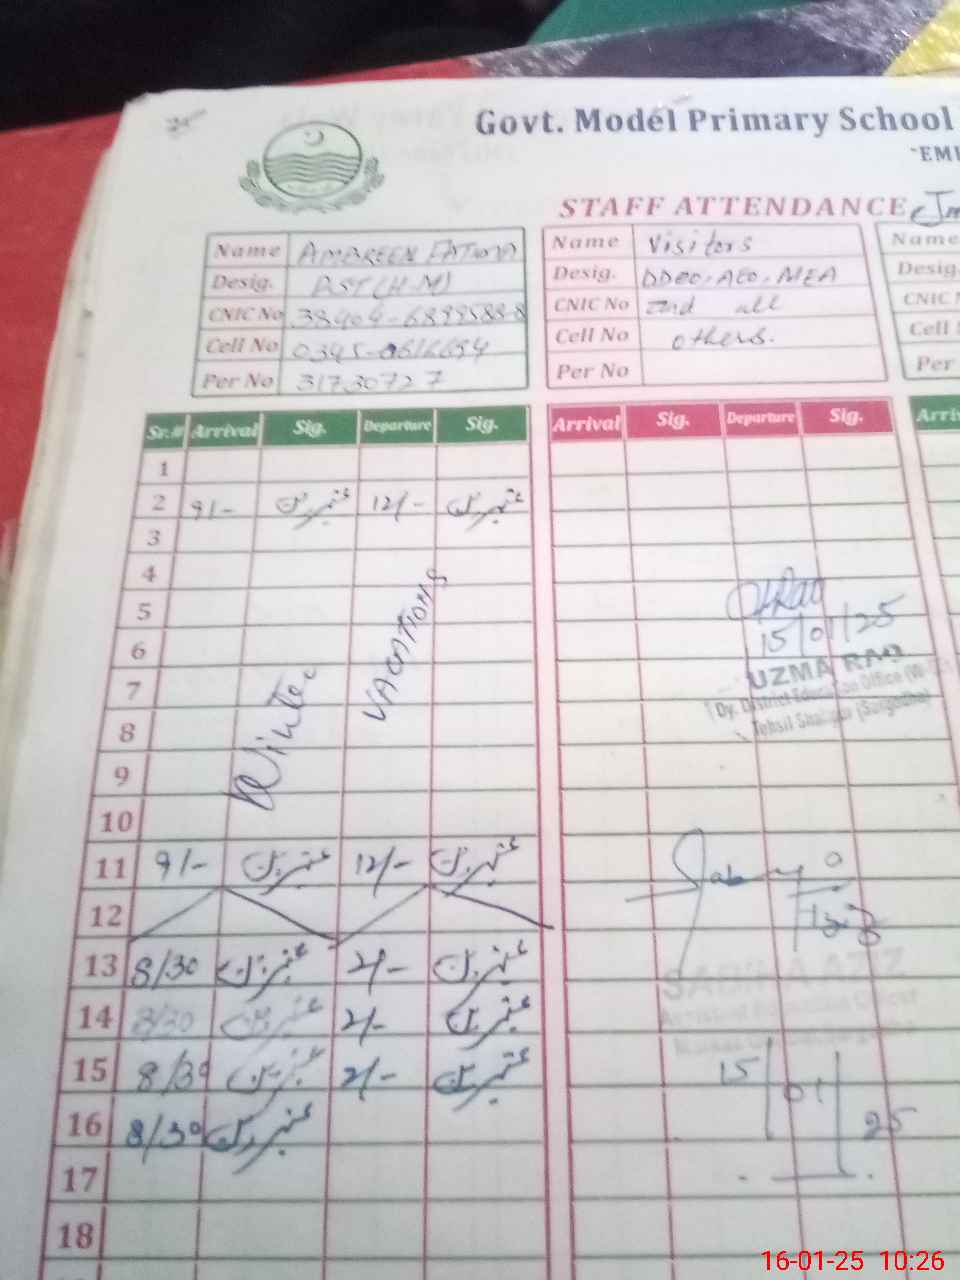 Govt. Model Primary School
"EMI
STAFF ATTENDANCE
Name AMBREEN FATIMA
Desig. PST (H.M)
CNIC No
Cell No
Per No 31730727
Name Visitors
Desig. DDEO, AEO, MEA
CNIC No and all
Cell No others.
Per No
Name
Desig.
CNIC N
Cell
Per
Sr.# Arrival Sig. Departure Sig.
Arrival Sig. Departure Sig.
Arriv
1
2 9/- عنبرین 12/- عنبرین
3
4
5
6
7
8
9
10
Winter VACATIONS
11 9/- عنبرین 12/- عنبرین
12
13 8/30 عنبرین 2/- عنبرین
14 8/30 عنبرین 2/- عنبرین
15 8/30 عنبرین 2/- عنبرین
16 8/30 عنبرین
17
18
15/01/25
UZMA RAO
Dy. District Education Office (W-
Tehsil (Sargodha)
SABIHA AZIZ
Assistant Education Officer
15/01/25
16-01-25 10:26